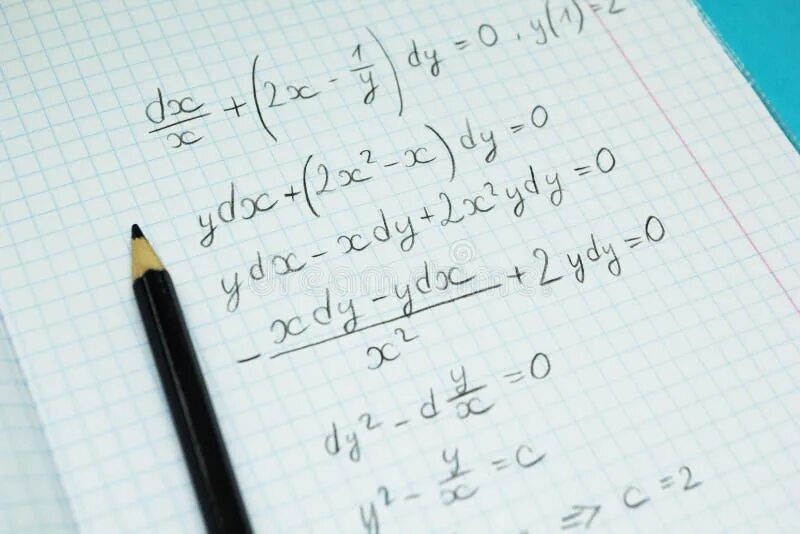 dx/x + (2x - 1/y) dy = 0, y(1) = 2
ydx + (2x² - x) dy = 0
ydx - xdy + 2x²ydy = 0
- (xdy - ydx)/x² + 2ydy = 0
dy² - d y/x = 0
y² - y/x = c
⇒ c = 2